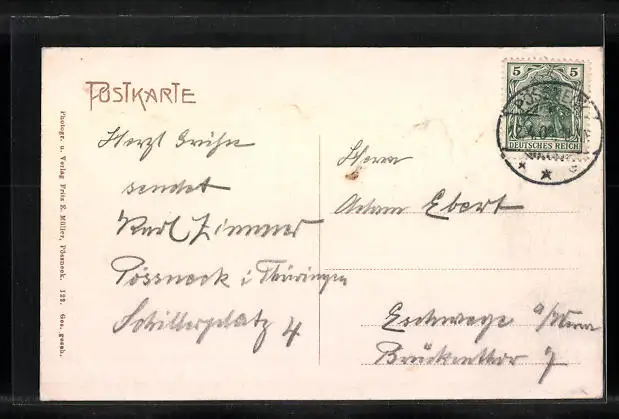 POSTKARTE
Herzl Grüße
sendet
Karl Zimmer
Pössneck i. Thüringen
Schillerplatz 4
Herrn
Adam Ebert
Eschwege a/Werra
Brückenthor 7
5 5
DEUTSCHES REICH
PÖSSNECK
Photogr. u. Verlag Fritz E. Müller, Pössneck. 122. Ges. gesch.